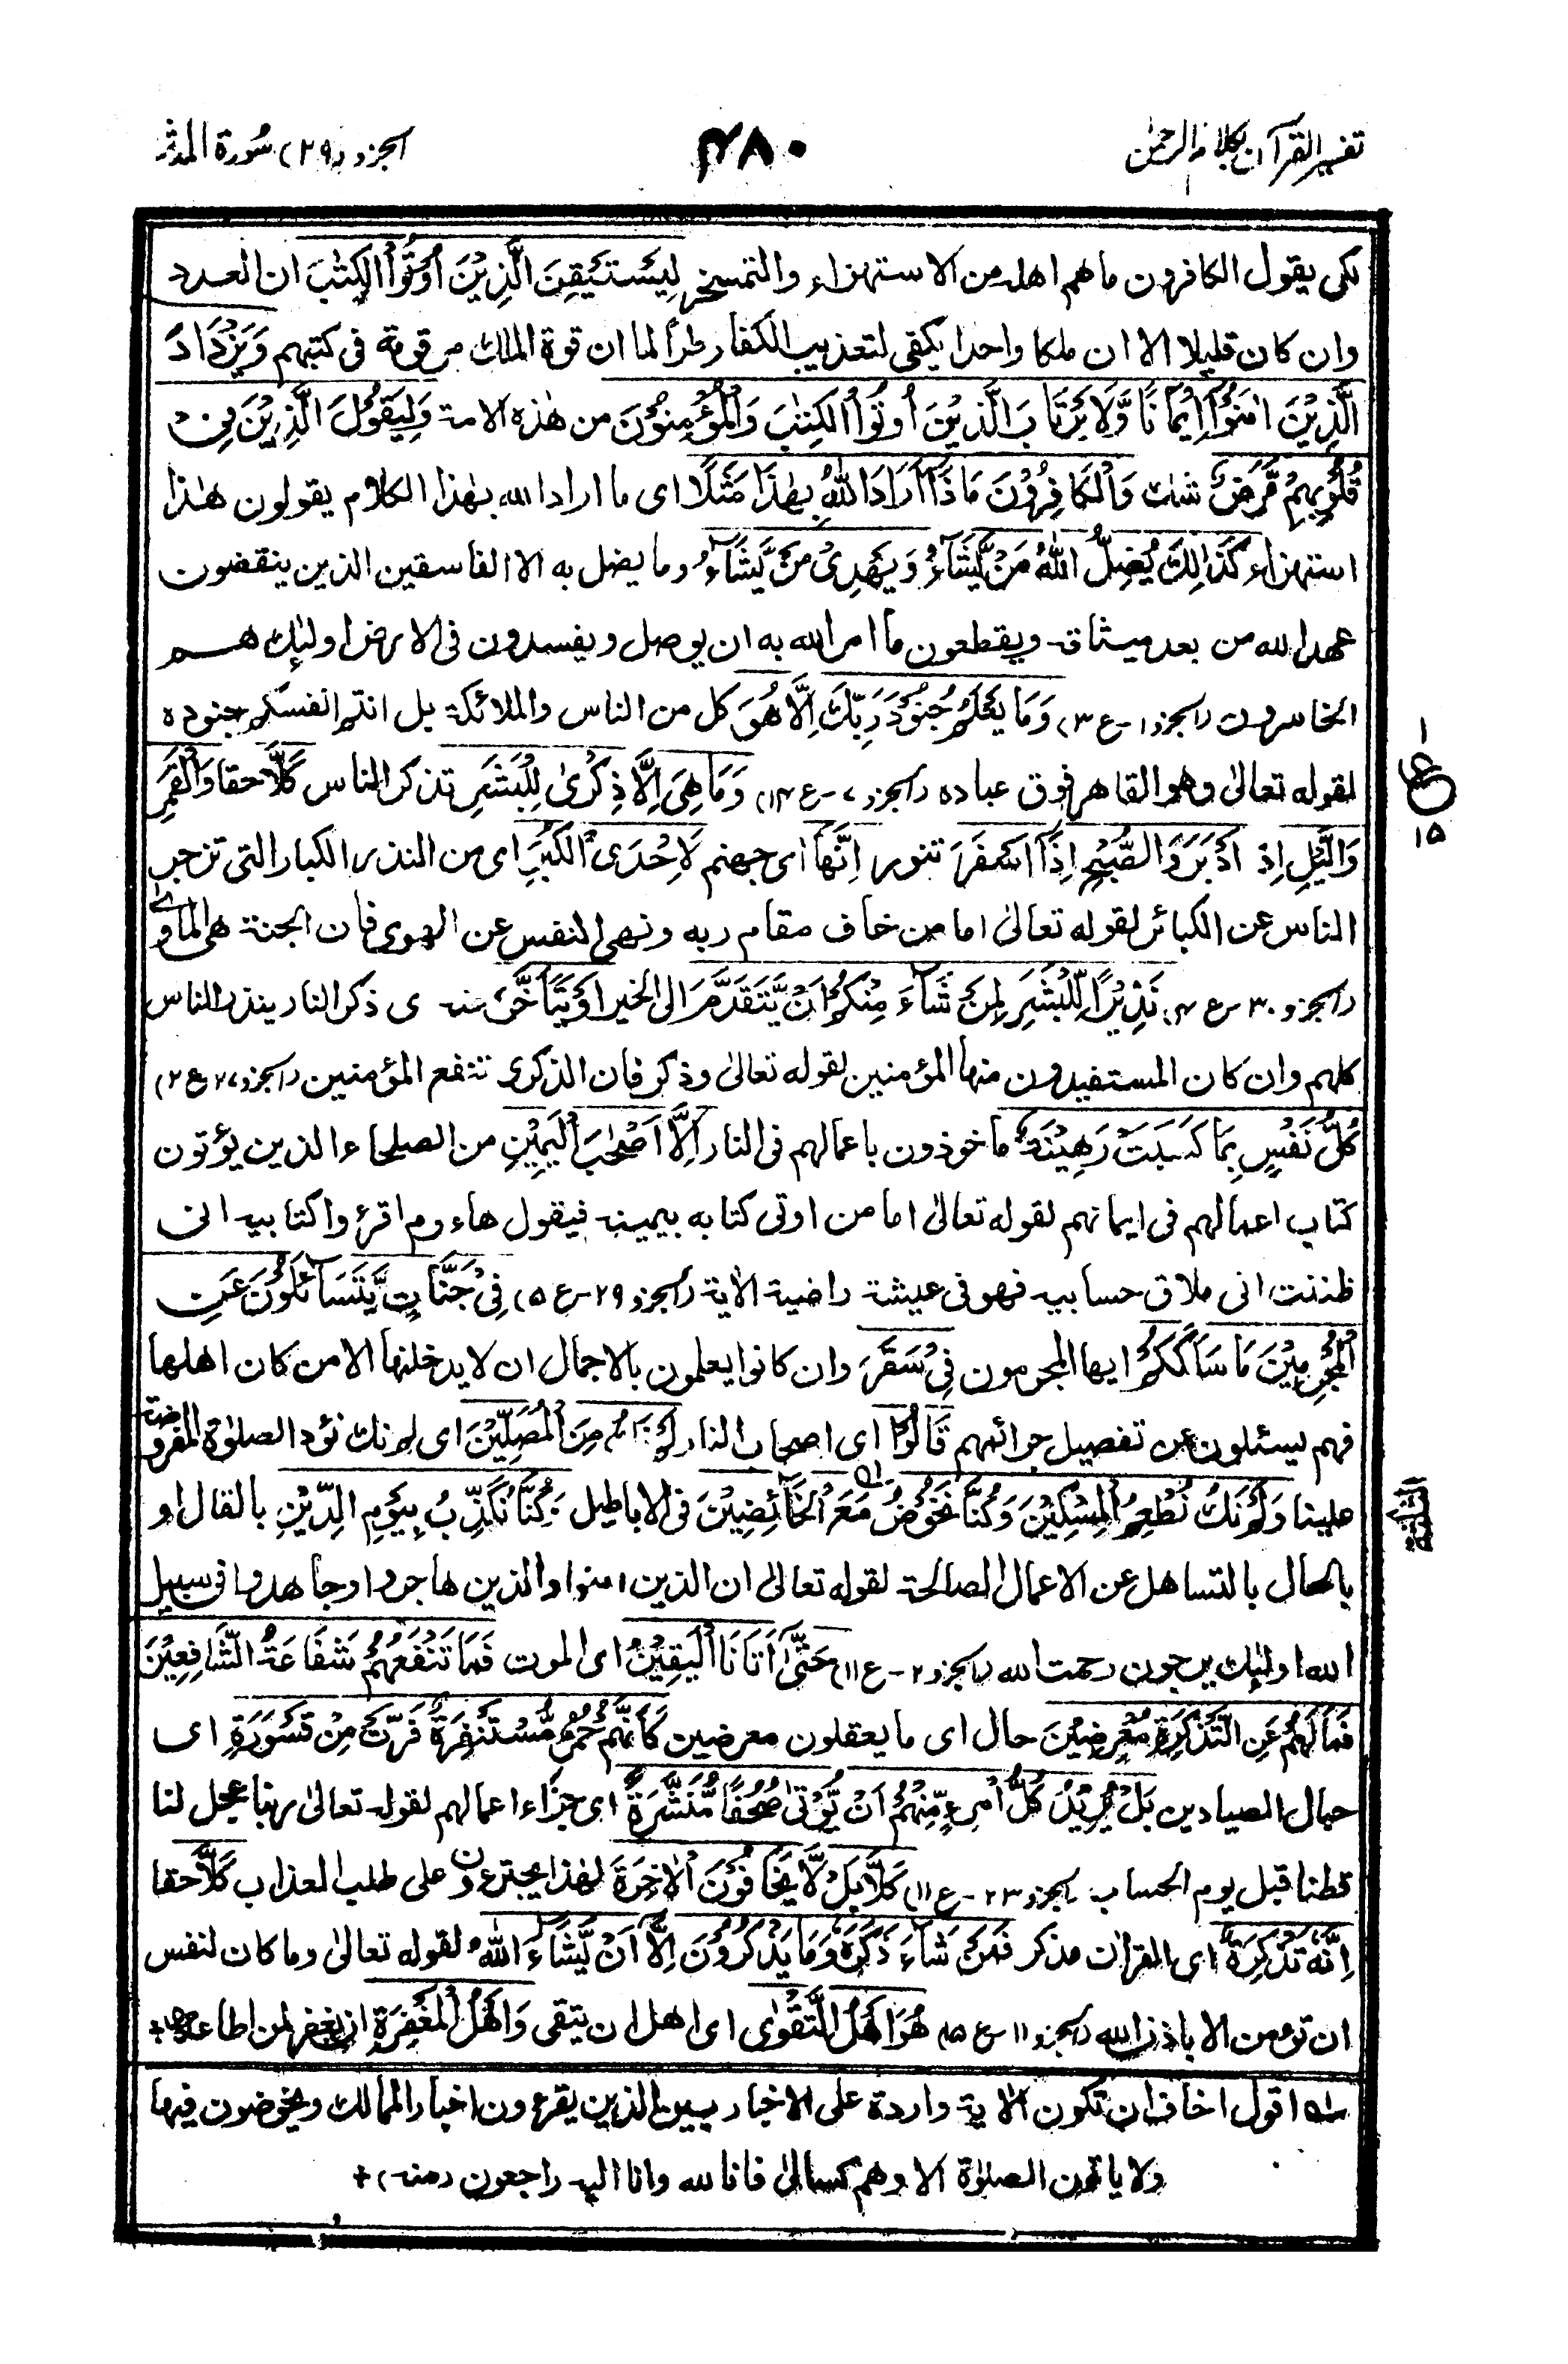 تفسير القرآن بكلام الرحمٰن
٤٨٠
الجزو (٢٩) سُورة المدثر
لكى يقول الكافرون ما هم اهله من الاستهزاء والتمسخر لِيَسْتَيْقِنَ الَّذِيْنَ اُوْتُوا الْكِتٰبَ ان العدد
وان كان قليلا الا ان ملكا واحدا يكفى لتعذيب الكفار طراً لما ان قوة الملك مرقومة فى كتبهم وَيَزْدَادَ
الَّذِيْنَ اٰمَنُوْٓا اِيْمَانًا وَّلَا يَرْتَابَ الَّذِيْنَ اُوتُوا الْكِتٰبَ وَالْمُؤْمِنُوْنَ من هٰذه الامة وَلِيَقُوْلَ الَّذِيْنَ فِىْ
قُلُوْبِهِمْ مَّرَضٌ شك وَّالْكَافِرُوْنَ مَاذَآ اَرَادَ اللّٰهُ بِهٰذَا مَثَلًا اى ما اراد الله بهٰذا الكلام يقولون هٰذا
استهزاء كَذٰلِكَ يُضِلُّ اللّٰهُ مَنْ يَّشَآءُ وَيَهْدِىْ مَنْ يَّشَآءُ وما يضل به الا الفاسقين الذين ينقضون
عهد الله من بعد ميثاقه ويقطعون ما امر الله به ان يوصل ويفسدون فى الارض اولٰئك هم
الخاسرون (الجزو ١-ع ٣) وَمَا يَعْلَمُ جُنُوْدَ رَبِّكَ اِلَّا هُوَ كل من الناس والملائكة بل انتم انفسكم جنوده
لقوله تعالىٰ وهو القاهر فوق عباده (الجزو ٧-ع ١٤) وَمَا هِىَ اِلَّا ذِكْرٰى لِلْبَشَرِ تذكر الناس كَلَّا حقا وَالْقَمَرِ
وَالَّيْلِ اِذْ اَدْبَرَ وَالصُّبْحِ اِذَآ اَسْفَرَ تنور اِنَّهَا اى جهنم لَاِحْدَى الْكُبَرِ اى من النذر الكبار التى تزجر
الناس عن الكبائر لقوله تعالىٰ اما من خاف مقام ربه ونهى النفس عن الهوى فان الجنة هى الماوٰى
(الجزو ٣٠-ع ٤) نَذِيْرًا لِّلْبَشَرِ لِمَنْ شَآءَ مِنْكُمْ اَنْ يَّتَقَدَّمَ الى الخير اَوْ يَتَاَخَّرَ منه ى ذكر النار ينذر الناس
كلهم وان كان المستفيدون منها المؤمنين لقوله تعالىٰ وذكر فان الذكرى تنفع المؤمنين (الجزو ٢٧-ع ٢)
كُلُّ نَفْسٍ بِمَا كَسَبَتْ رَهِيْنَةٌ ماخوذون باعمالهم فى النار اِلَّآ اَصْحٰبَ الْيَمِيْنِ من الصلحاء الذين يؤتون
كتاب اعمالهم فى ايمانهم لقوله تعالىٰ اما من اوتى كتابه بيمينه فيقول هاءوم اقرؤا كتابيه انى
ظننت انى ملاق حسابيه فهو فى عيشة راضية الاٰية (الجزو ٢٩-ع ٥) فِىْ جَنَّاتٍ يَّتَسَآئَلُوْنَ عَنِ
الْمُجْرِمِيْنَ مَا سَلَكَكُمْ ايها المجرمون فِىْ سَقَرَ وان كانوا يعلمون بالاجمال ان لا يدخلنها الا من كان اهلها
فهم يسئلون عن تفصيل جرائمهم قَالُوْا اى اصحاب النار لَمْ نَكُ مِنَ الْمُصَلِّيْنَ اى لم نك نؤد الصلوٰة المفروضة
علينا وَلَمْ نَكُ نُطْعِمُ الْمِسْكِيْنَ وَكُنَّا نَخُوْضُ مَعَ الْخَآئِضِيْنَ ١ فى الاباطيل وَكُنَّا نُكَذِّبُ بِيَوْمِ الدِّيْنِ بالقال او
بالحال بالتساهل عن الاعمال الصالحة لقوله تعالىٰ ان الذين اٰمنوا والذين هاجروا وجاهدوا فى سبيل
الله اولٰئك يرجون رحمت الله (الجزو ٢-ع ١١) حَتّٰٓى اَتَانَا الْيَقِيْنُ اى الموت فَمَا تَنْفَعُهُمْ شَفَاعَةُ الشَّافِعِيْنَ
فَمَا لَهُمْ عَنِ التَّذْكِرَةِ مُعْرِضِيْنَ حال اى ما يعقلون معرضين كَاَنَّهُمْ حُمُرٌ مُّسْتَنْفِرَةٌ فَرَّتْ مِنْ قَسْوَرَةٍ اى
حبال الصيادين بَلْ يُرِيْدُ كُلُّ امْرِئٍ مِّنْهُمْ اَنْ يُّؤْتٰى صُحُفًا مُّنَشَّرَةً اى جزاء اعمالهم لقوله تعالىٰ ربنا عجل لنا
قطنا قبل يوم الحساب (الجزو ٢٣-ع ١١) كَلَّا بَلْ لَّا يَخَافُوْنَ الْاٰخِرَةَ لهٰذا يجترءون على طلب العذاب كَلَّآ حقا
اِنَّهٗ تَذْكِرَةٌ اى القراٰن مذكر فَمَنْ شَآءَ ذَكَرَهٗ وَمَا يَذْكُرُوْنَ اِلَّآ اَنْ يَّشَآءَ اللّٰهُ لقوله تعالىٰ وما كان لنفس
ان تؤمن الا باذن الله (الجزو ١١-ع ١٥) هُوَ اَهْلُ التَّقْوٰى اى اهل ان يتقى وَاَهْلُ الْمَغْفِرَةِ ان يغفر لمن اطاعه
١ اقول اخاف ان تكون الاٰية واردة على الاخباريين الذين يقرءون اخبار الممالك ويخوضون فيها
ولا ياتون الصلوٰة الا وهم كسالىٰ فانا لله وانا اليه راجعون (منه) +
١
ع
١٥